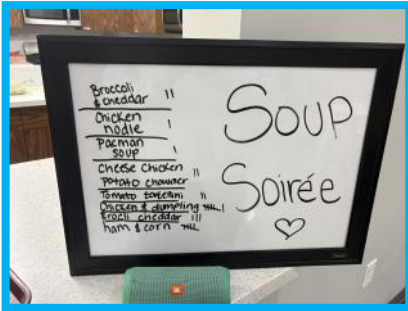 Broccoli
& cheddar II
Chicken
nodle I
Pacman
soup I
Cheese Chicken II
Potato chowder
Tomato tortellini II
Chicken & dumpling IIII I
Brocli cheddar III
ham & corn IIII
Soup
Soirée
JBL